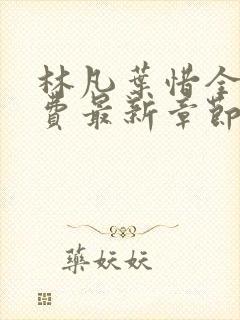 林凡葉惜全
費最新章節
藥妖妖